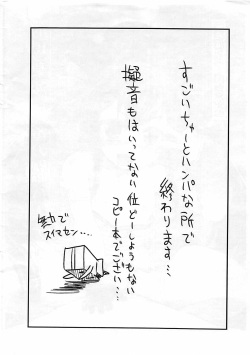 すごいちゅーとハンパな所で
終わります…
擬音もはいってない位どーしようもない
コピー本でござい…
熱で
スイマセン…